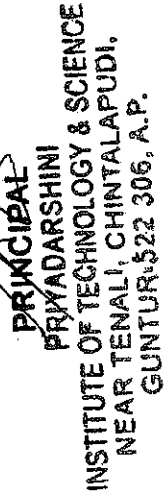 PRINCIPAL
PRIYADARSHINI
INSTITUTE OF TECHNOLOGY & SCIENCE
NEAR TENALI, CHINTALAPUDI,
GUNTUR:522 306, A.P.